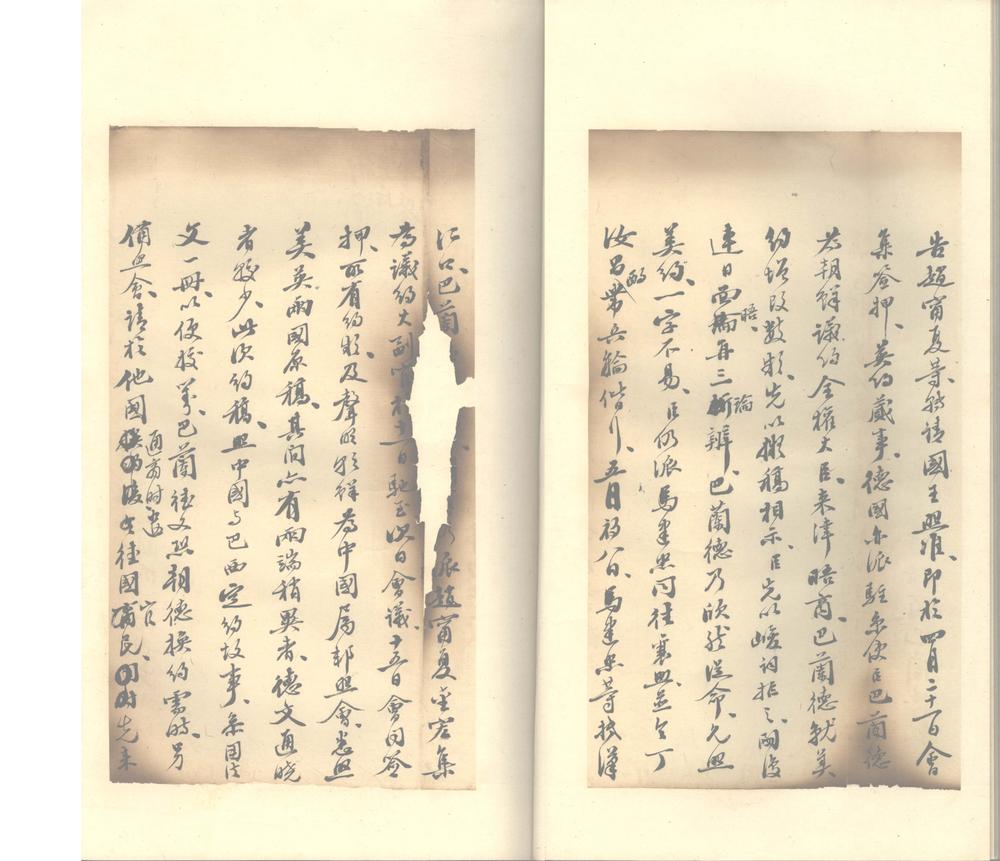 告趙甯夏等轉請國王照准即於四月二十一日會
集簽押英約蕆事德國亦派駐京使臣巴蘭德
為朝鮮議約全權大臣來津晤商巴蘭德就美
約增改數款先以擬稿相示臣先以峻詞拒之嗣復
連日面晤再三論辯巴蘭德乃欣然從命允照
美約一字不易臣仍派馬建忠同往襄助並令丁
汝昌酌帶兵輪偕行五月初八日馬建忠等抵漢
江口巴蘭 派趙甯夏金宏集
為議約大副官於十二日馳至次日會議十五日會同簽
押所有約款及聲明朝鮮為中國屬邦照會悉照
美英兩國原稿其間亦有兩端稍異者德文通曉
者較少此次約稿照中國與巴西定約故事兼用法
文一冊以便校對巴蘭德又恐朝德換約需時另
備照會請於他國通商時遣官往國官民先來